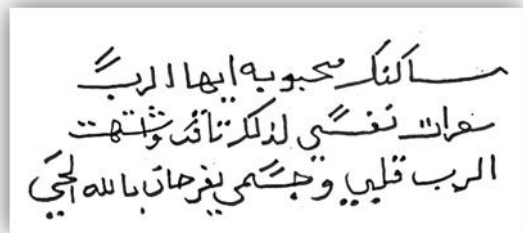 مساكنك محبوبه ايها الرب
نفسي لذلك تاقت واشتهت
الرب قلبي وجسمي يفرحان بالله الحي